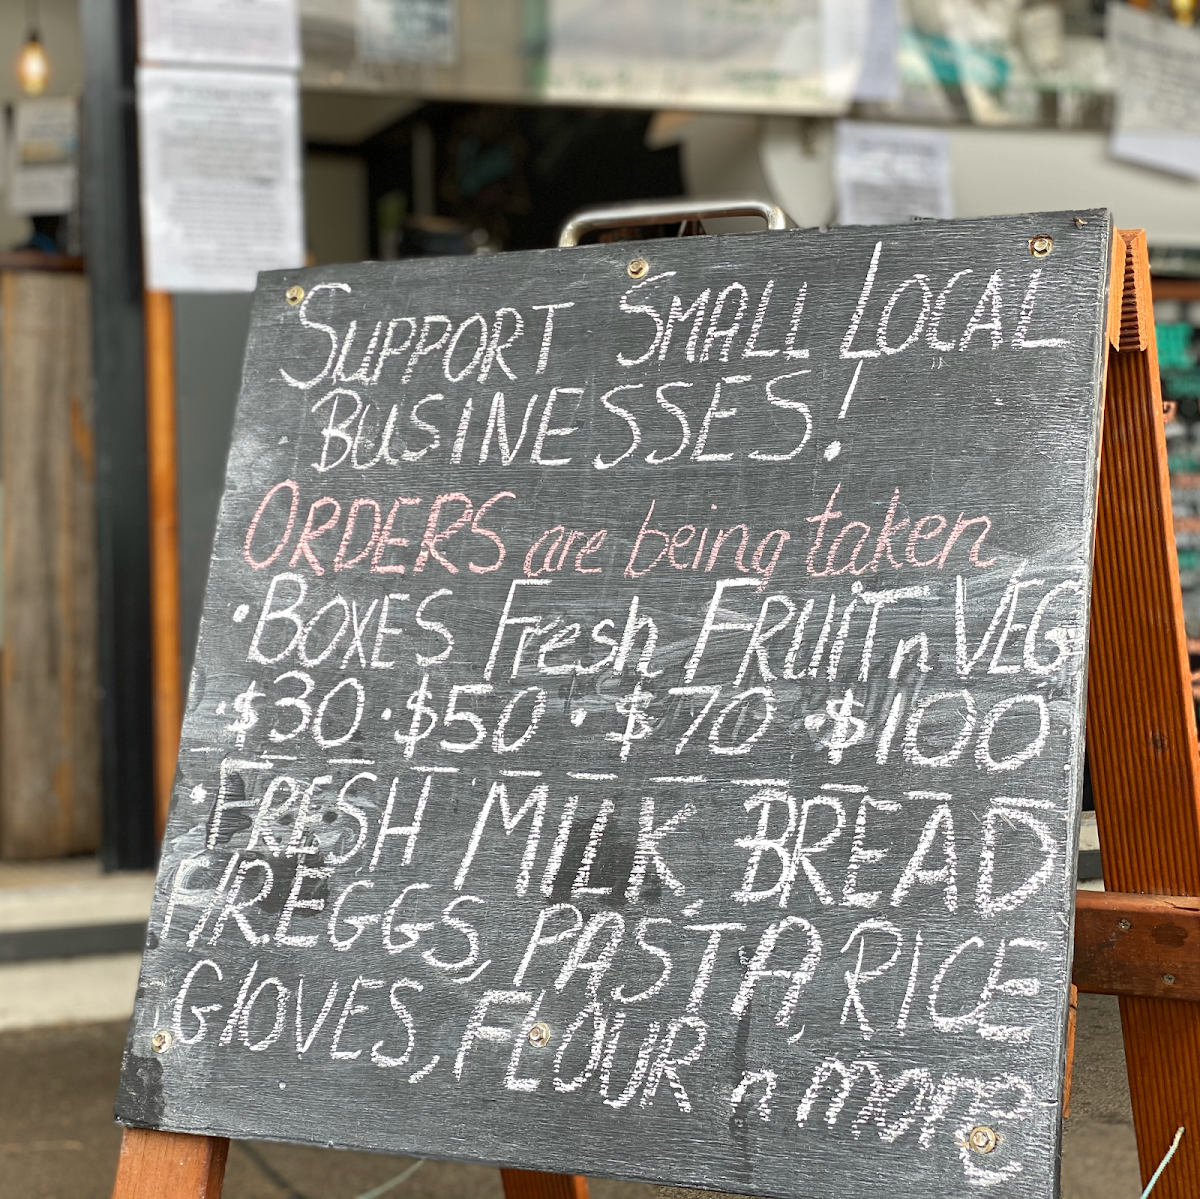 SUPPORT SMALL LOCAL
BUSINESSES!
ORDERS are being taken
• BOXES Fresh FRUIT n VEG
• $30 • $50 • $70 • $100
• FRESH MILK BREAD
F/R EGGS, PASTA, RICE
GlOVES, FLOUR n more